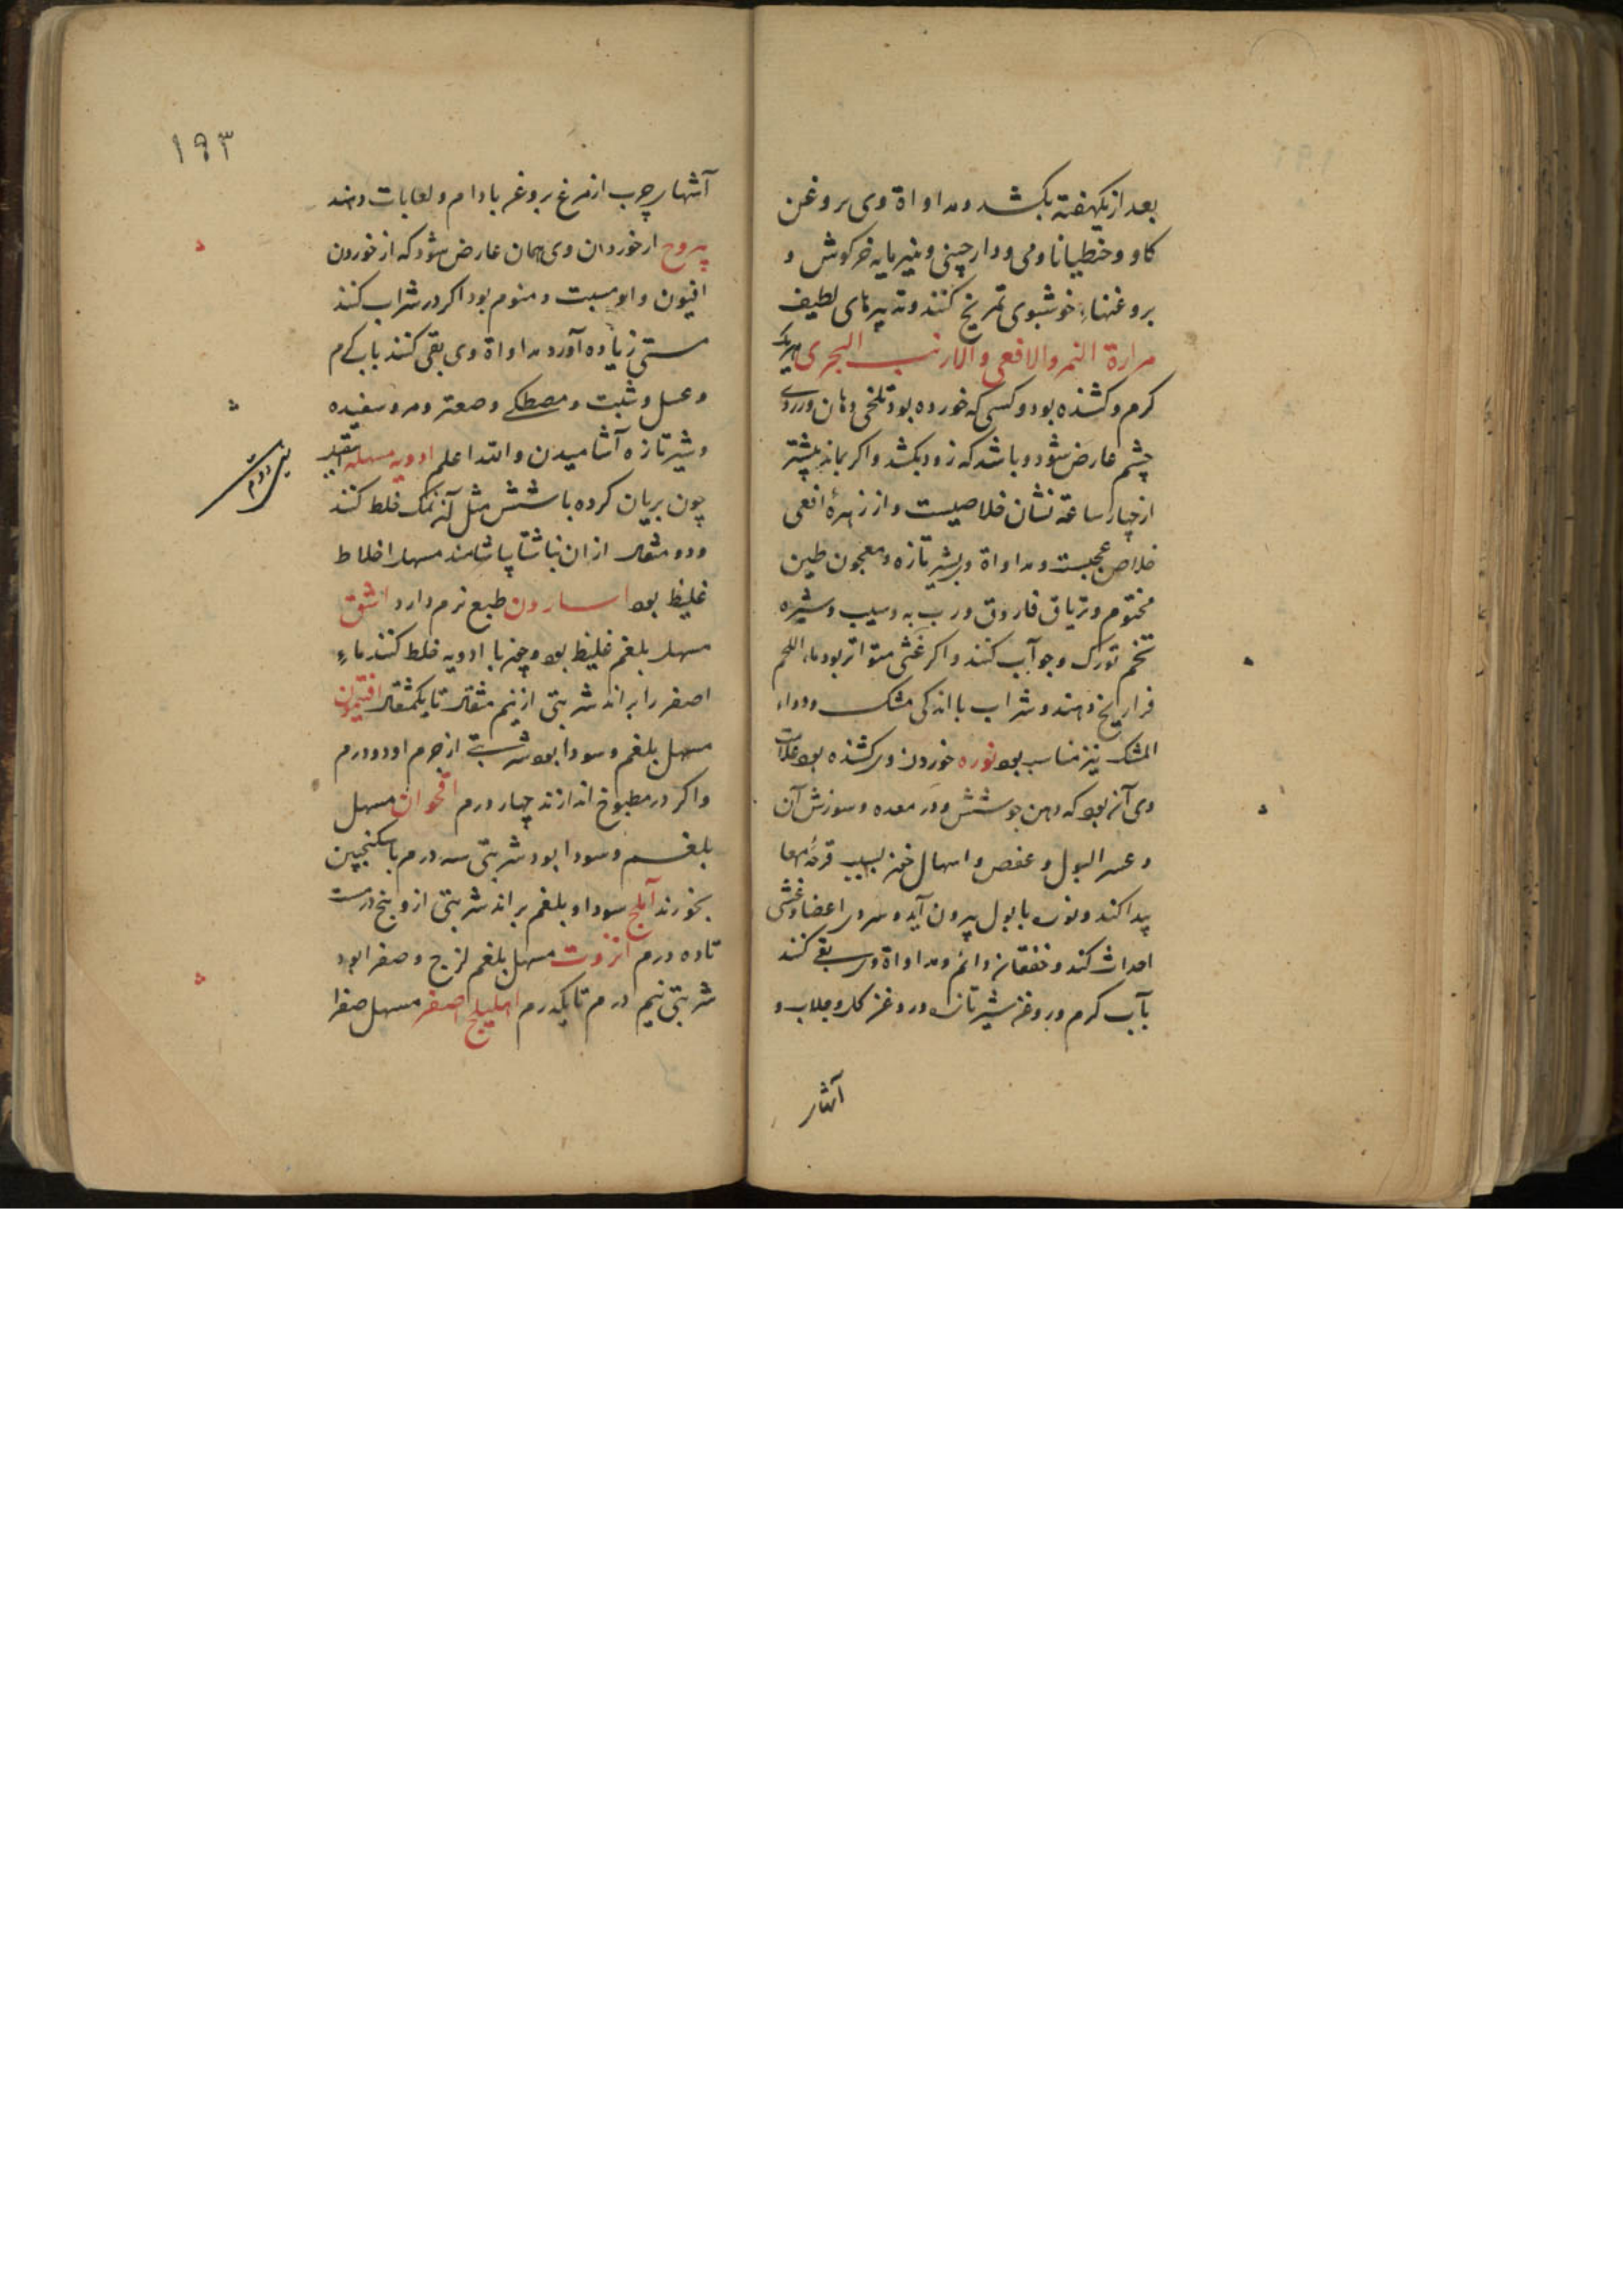 بعد از یکهفته بکشد و مداواة وی بروغن
کاو و خطیانا رومی و دارچینی و پنیرمایه خرکوش و
بروغنهاء خوشبوی تمریخ کنند و تدبیرهای لطیف
مرارة النمر والافعی والارنب البحری هریک
کرم و کشنده بود و کسی که خورده بود تلخی دهان و زردی
چشم عارض شود و باشد که زود بکشد و اکر بماند بیشتر
از چهار ساعة نشان خلاصیست و از زهرهٔ افعی
خلاص عجبست و مداواة وی بشیر تازه و معجون طین
مختوم و تریاق فاروق و رب به و سیب و شیره
تخم تورک و جو آب کنند و اکر غشی متواتر بود ماء اللحم
فراریخ دهند و شراب با اندکی مشک و دواء
المشک نیز مناسب بود نوره خوردن وی کشنده بود علامت
وی آن بود که دهن جوشش و درد معده و سوزش آن
و عسر البول و مغص و اسهال خون بسبب قرحهٔ امعا
پیدا کند و نوره با بول بیرون آید و سردی اعضا و غشی
احداث کند و خفقان دائم و مداواة وی بقی کنند
بآب کرم و روغن شیر تازه و روغن کل و جلاب و
آشهار
۱۹۳
آشهار چرب از مرغ بروغن بادام و لعابات دهند
یبروح از خوردن وی همان عارض شود که از خوردن
افیون و او مسبت و منوم بود اکر در شراب کنند
مستی زیاده آورد مداواة وی بقی کنند بآب کرم
و عسل و شبت و مصطکی و صعتر و مر و سفیده
و شیر تازه آشامیدن والله اعلم ادویه مسهله اسقیل
چون بریان کرده با شش مثل آن نمک خلط کنند
و دو مثقال از آن ناشتا بیاشامند مسهل اخلاط
غلیظ بود اسارون طبع نرم دارد اشق
مسهل بلغم غلیظ بود و چون با ادویه خلط کنند ماء
اصفر را براند شربتی از نیم مثقال تا یکمثقال افتیمون
مسهل بلغم و سودا بود شربتی از جرم او دو درم
و اکر در مطبوخ اندازند چهار درم اقحوان مسهل
بلغم و سودا بود شربتی سه درم با سکنجبین
بخورند آملج سودا و بلغم براند شربتی از و پنج درمست
تا ده درم انزروت مسهل بلغم لزج و صفرا بود
شربتی نیم درم تا یکدرم اهلیلج اصفر مسهل صفرا